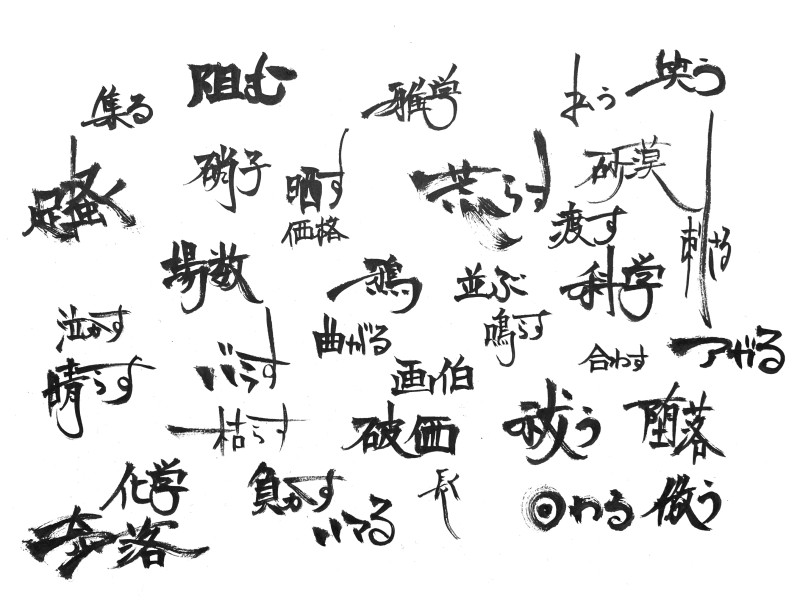 集る
阻む
雅学
笑う
硝子
晒す
価格
荒らす
砂漠
渡す
刺さる
場数
鴉
並ぶ
科学
泣かす
曲がる
鳴らす
合わす
アガる
晴らす
バラす
画伯
枯らす
破価
祓う
堕落
化学
負かす
長く
回わる
倣う
奈落